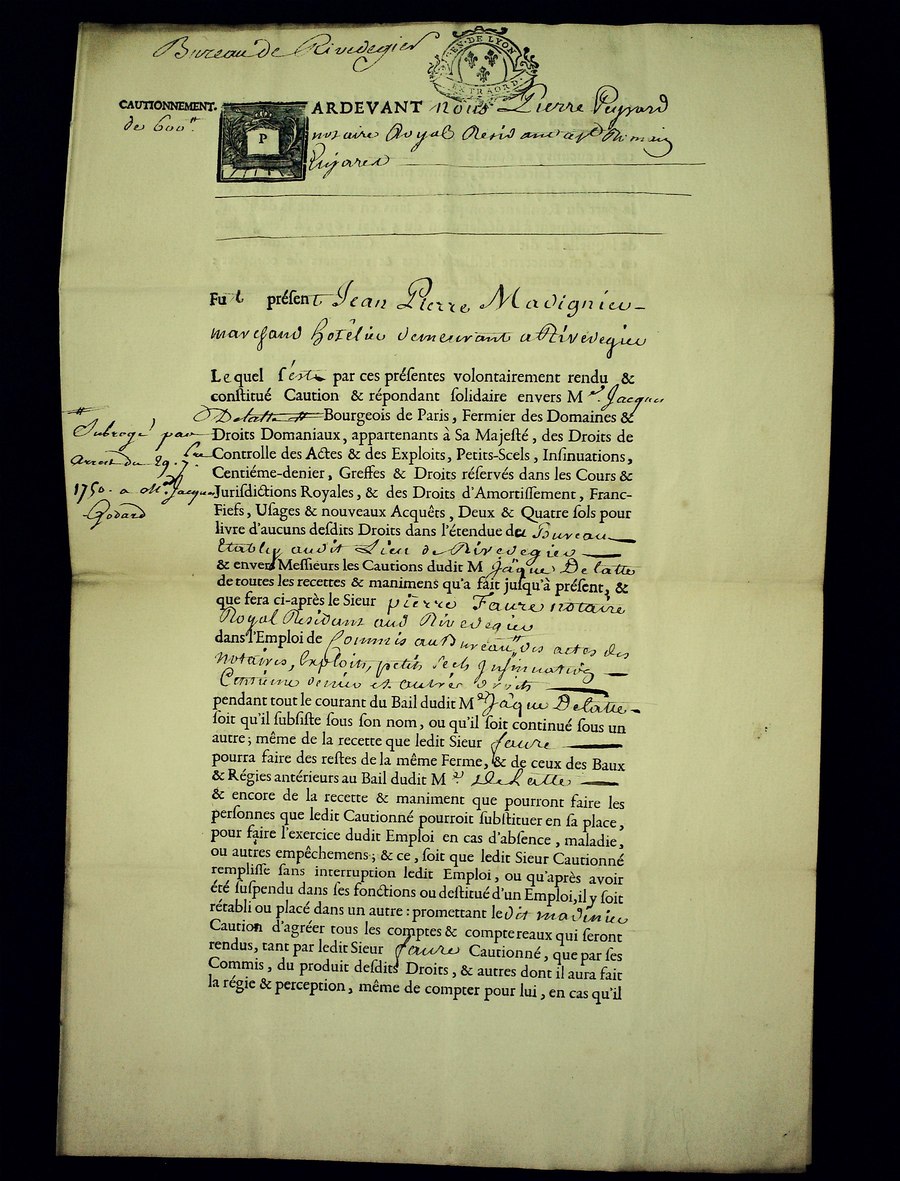 Bureau de Rivedegier
GEN. DE LYON
EXTRAORD.
CAUTIONNEMENT.
de 600ᵗᵗ
P
ARDEVANT nous Pierre Peyrard
notaire Royal Residant a
Fut préſent Jean Pierre Madignier
marchand hotêlier demeurant a Rivedegier
Le quel s'est par ces préſentes volontairement rendu &
conſtitué Caution & répondant ſolidaire envers Mᵉ. Jacques
Delatte # Bourgeois de Paris, Fermier des Domaines &
Droits Domaniaux, appartenants à Sa Majeſté, des Droits de
Controlle des Actes & des Exploits, Petits-Scels, Inſinuations,
Centiéme-denier, Greffes & Droits réſervés dans les Cours &
Juriſdictions Royales, & des Droits d'Amortiſſement, Franc-
Fiefs, Uſages & nouveaux Acquêts, Deux & Quatre ſols pour
livre d'aucuns deſdits Droits dans l'étendue du Bureau
Etably audit Lieu de Rivedegier
# Subrogé par
Arrest du 29. 7.bre
1750. a Mᵉ. Jacques
Godard
& envers Meſſieurs les Cautions dudit M Jâque Delatte
de toutes les recettes & manimens qu'a fait juſqu'à préſent, &
que fera ci-après le Sieur pierre Faure notaire
Royal Residant aud Rivedegier
dans l'Emploi de Commis au Bureau des actes des
notaires, Exploits, petits Scels Insinuations
Centieme denier et autres droits
pendant tout le courant du Bail dudit Mᵉ Jâque Delatte
ſoit qu'il ſubſiſte ſous ſon nom, ou qu'il ſoit continué ſous un
autre; même de la recette que ledit Sieur faure
pourra faire des reſtes de la même Ferme, & de ceux des Baux
& Régies antérieurs au Bail dudit Mᵉ. Delatte
& encore de la recette & maniment que pourront faire les
perſonnes que ledit Cautionné pourroit ſubſtituer en ſa place,
pour faire l'exercice dudit Emploi en cas d'abſence, maladie,
ou autres empêchemens; & ce, ſoit que ledit Sieur Cautionné
rempliſſe ſans interruption ledit Emploi, ou qu'après avoir
été ſuſpendu dans ſes fonctions ou deſtitué d'un Emploi, il y ſoit
rétabli ou placé dans un autre: promettant ledit madinier
Caution d'agréer tous les comptes & comptereaux qui ſeront
rendus, tant par ledit Sieur faure Cautionné, que par ſes
Commis, du produit deſdits Droits, & autres dont il aura fait
la régie & perception, même de compter pour lui, en cas qu'il